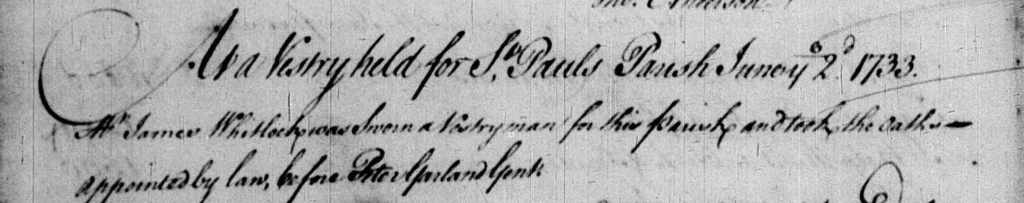 Tho. Anderson
At a Vestry held for St. Pauls Parish June ye 2d. 1733.
Mr. James Whitlock was Sworn a Vestryman for this Parish and took the oaths
appointed by law, before Peter Garland Gent